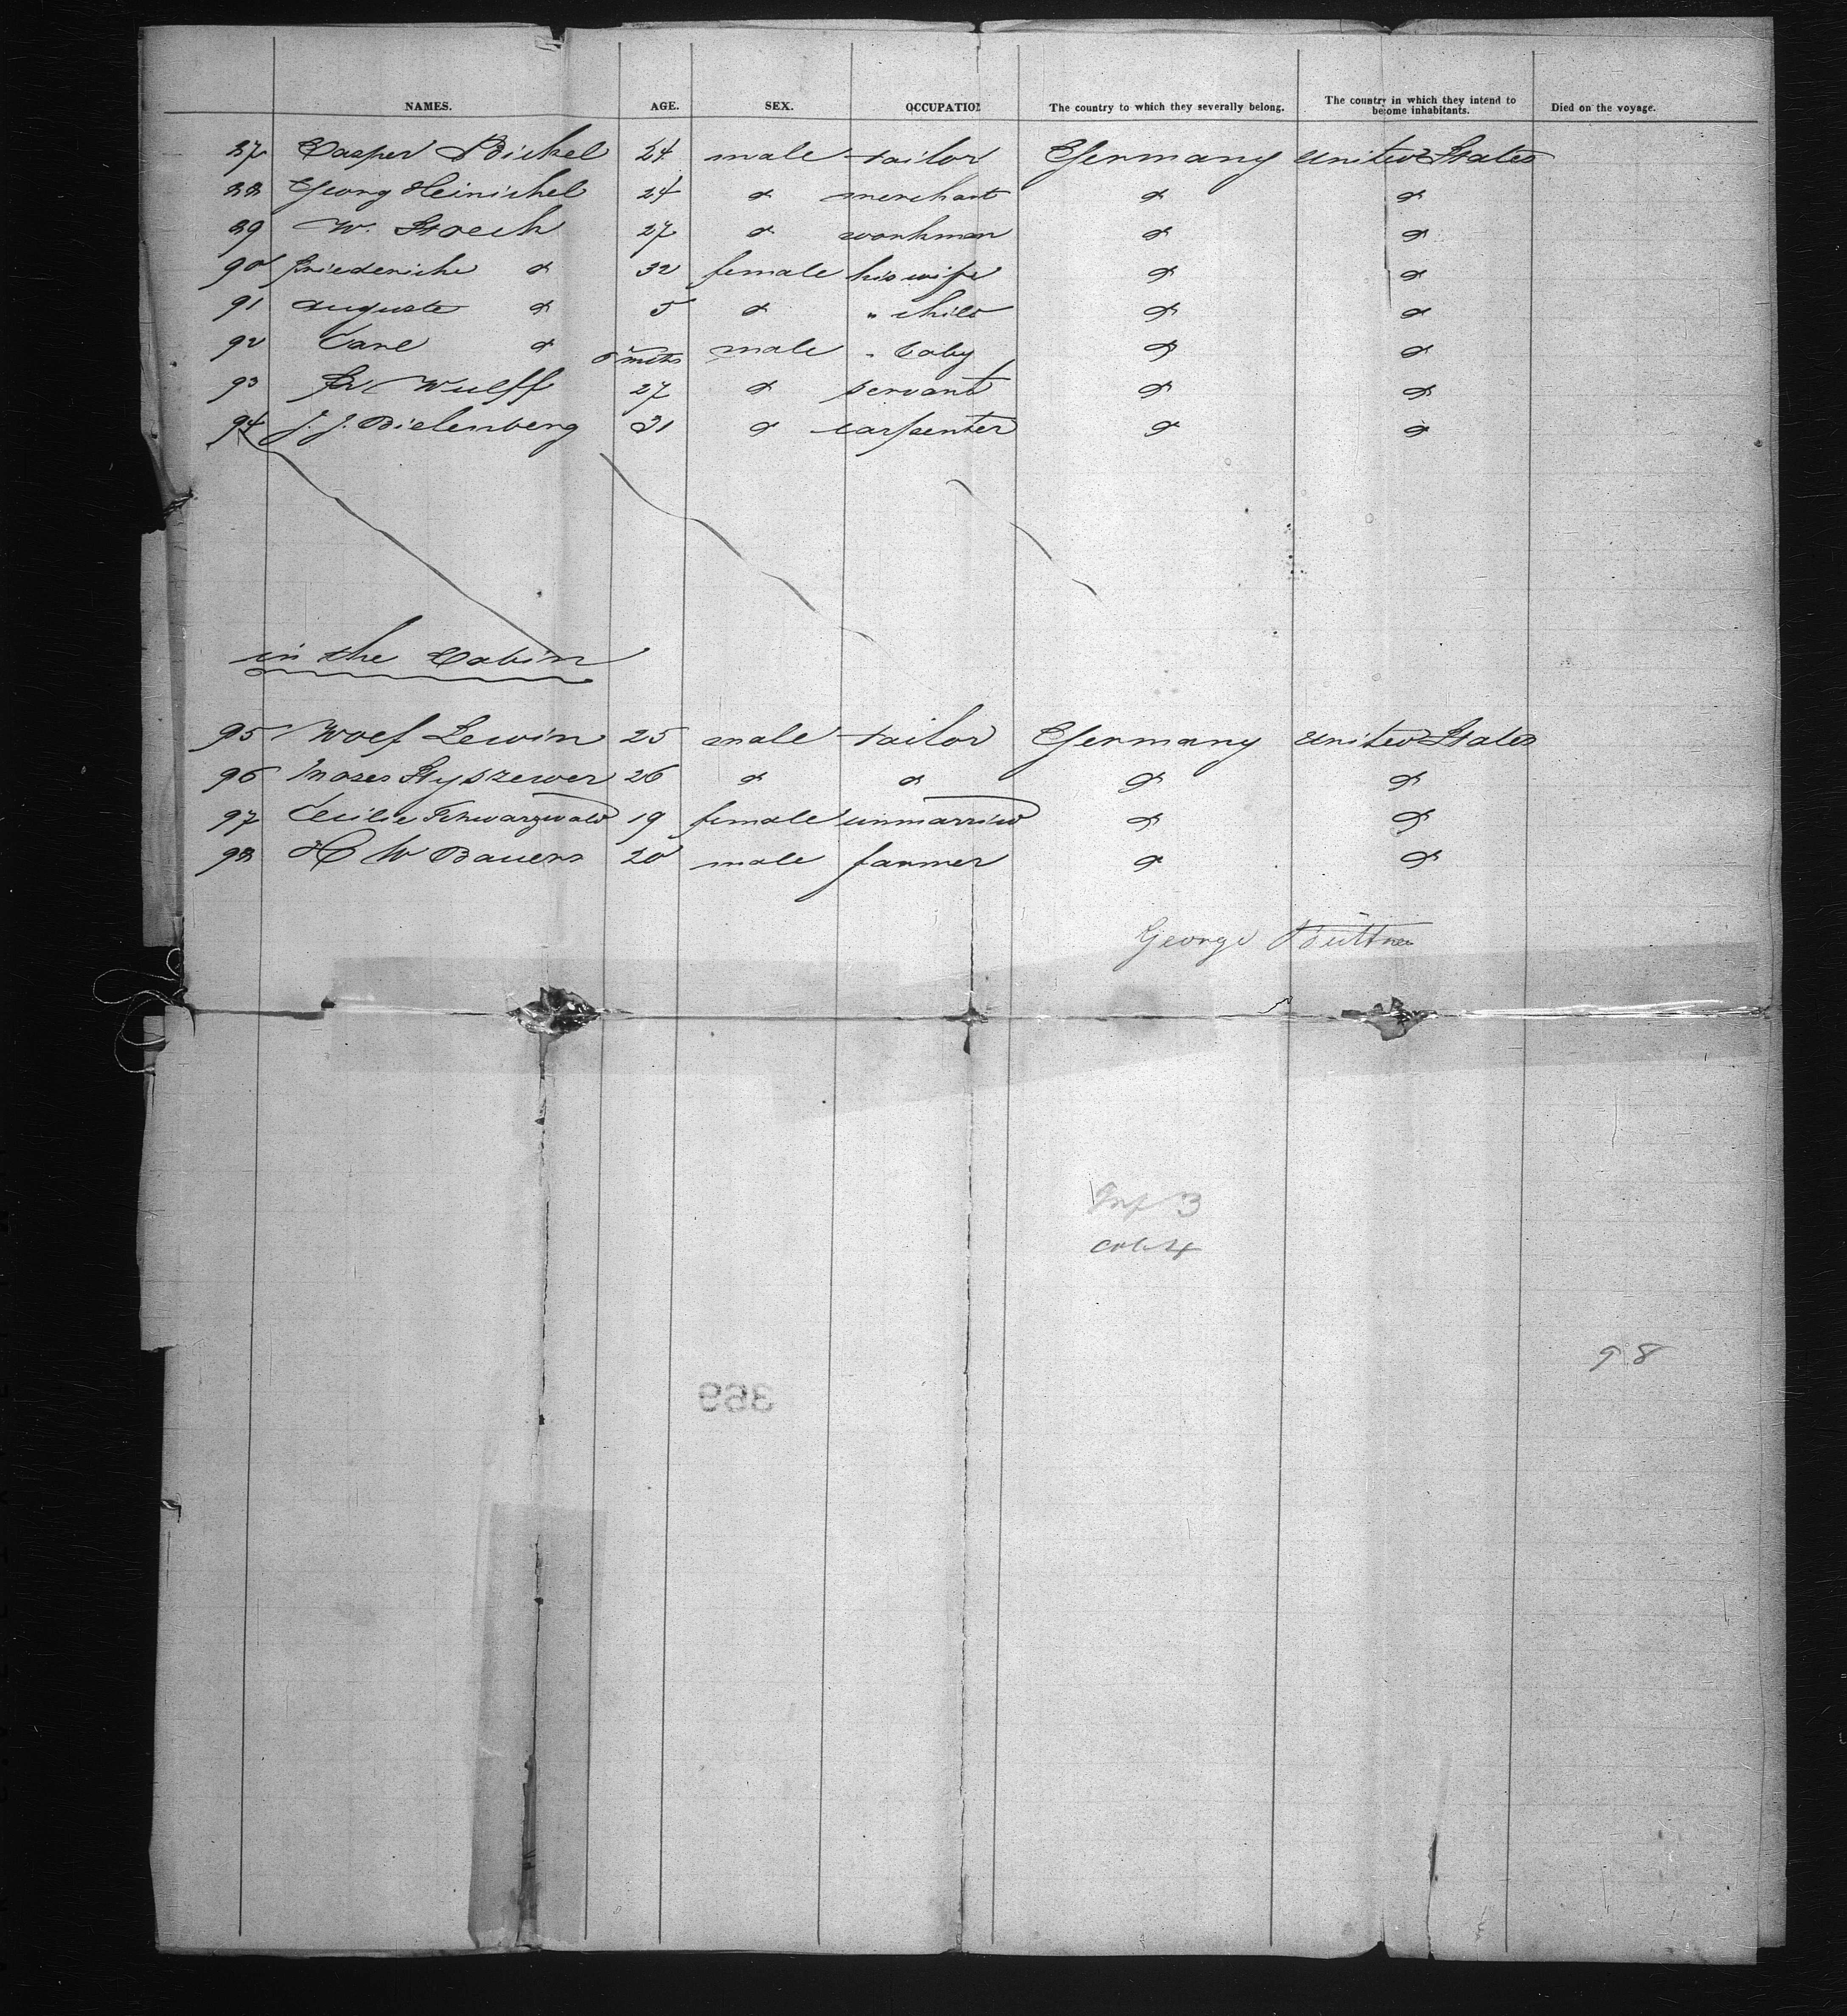 NAMES. AGE. SEX. OCCUPATION The country to which they severally belong. The country in which they intend to become inhabitants. Died on the voyage.
87 Casper Bickel 24 male tailor Germany United States
88 Georg Heinichel 24 do merchant do do
89 W. Stoech 27 do workman do do
90 Friederike do 32 female his wife do do
91 Auguste do 5 do " child do do
92 Carl do mths male " baby do do
93 Fr Wulff 27 do servant do do
94 J. J. Bielenberg 31 do carpenter do do
in the Cabin
95 Wolf Lewin 25 male tailor Germany United States
96 Moses Styszewer 26 do do do do
97 Cecilie Schwarzwald 19 female unmarried do do
98 H W Bauers 20 male farmer do do
George Büttner
Inf 3
Cab 4
98
399